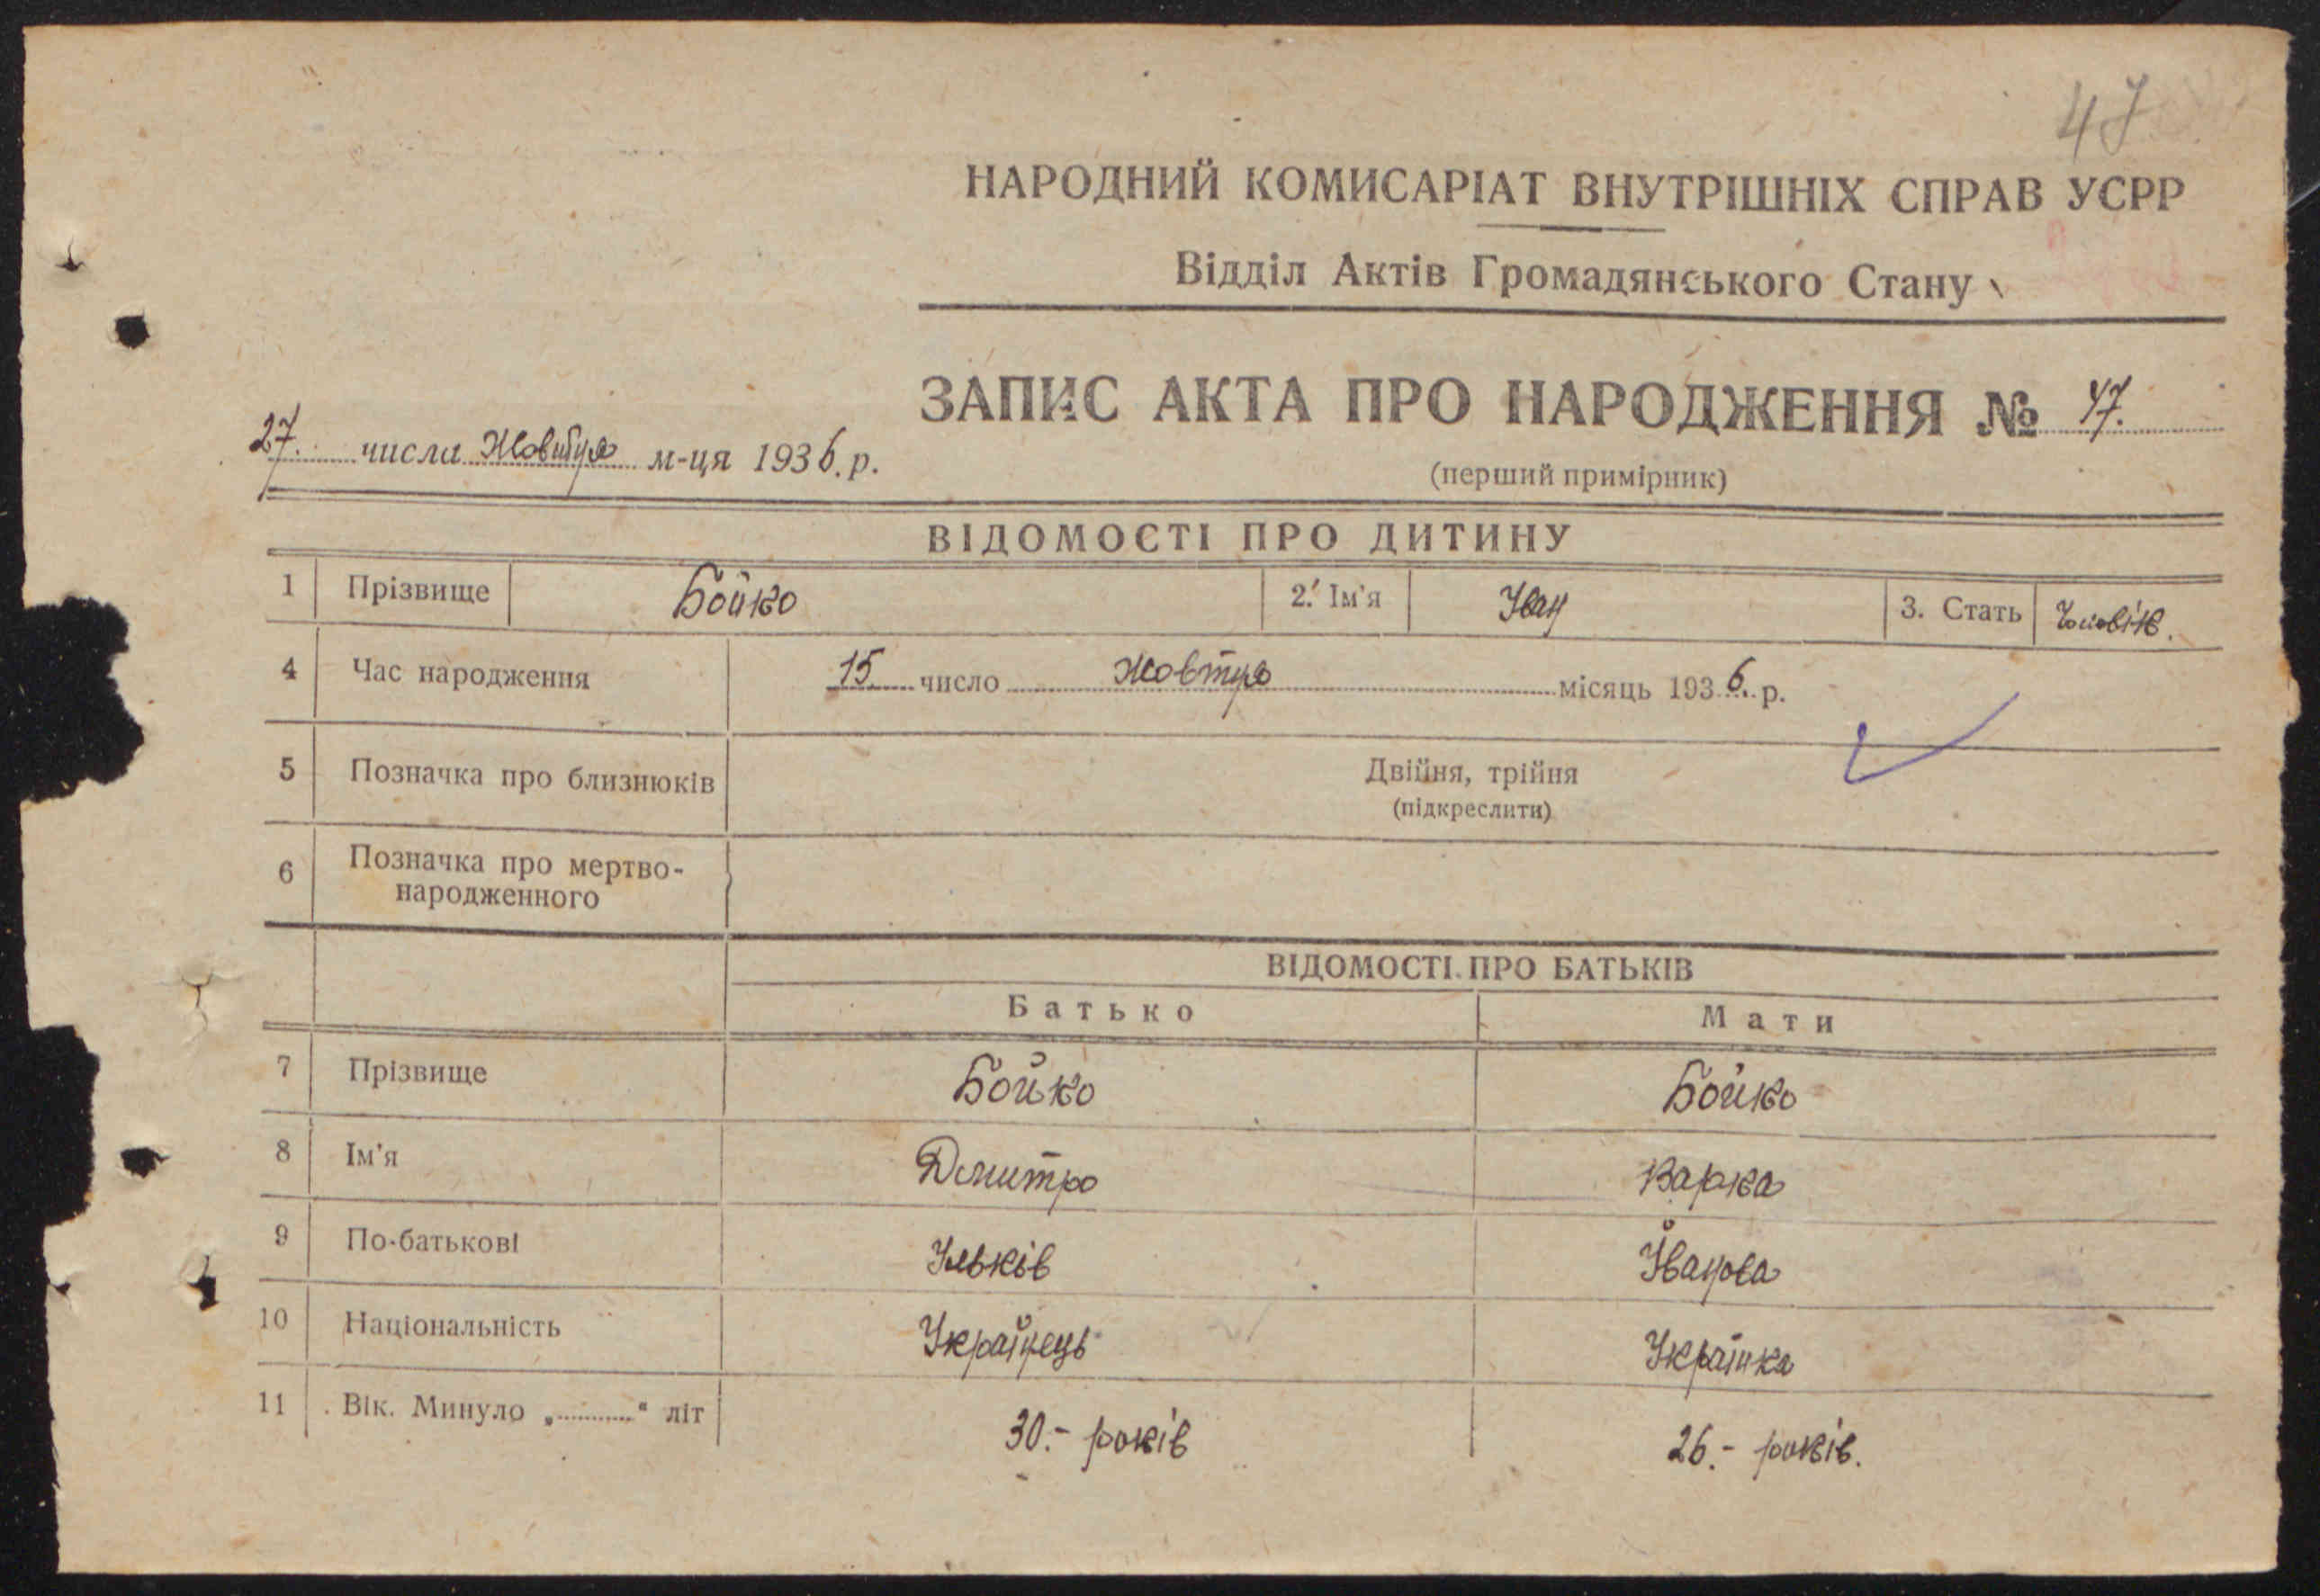 47
НАРОДНИЙ КОМИСАРІАТ ВНУТРІШНІХ СПРАВ УСРР
Відділ Актів Громадянського Стану
ЗАПИС АКТА ПРО НАРОДЖЕННЯ № 47.
27. числа Жовтня м-ця 1936. р.
(перший примірник)
ВІДОМОСТІ ПРО ДИТИНУ
1 Прізвище Бойко 2. Ім'я Іван 3. Стать Чоловік.
4 Час народження 15 число Жовтня місяць 1936. р.
5 Позначка про близнюків Двійня, трійня
(підкреслити)
6 Позначка про мертво-
народженного
ВІДОМОСТІ ПРО БАТЬКІВ
Батько Мати
7 Прізвище Бойко Бойко
8 Ім'я Дмитро Варка
9 По-батькові Ільків Іванова
10 Національність Українець Українка
11 Вік. Минуло „............" літ 30.- років 26.- років.